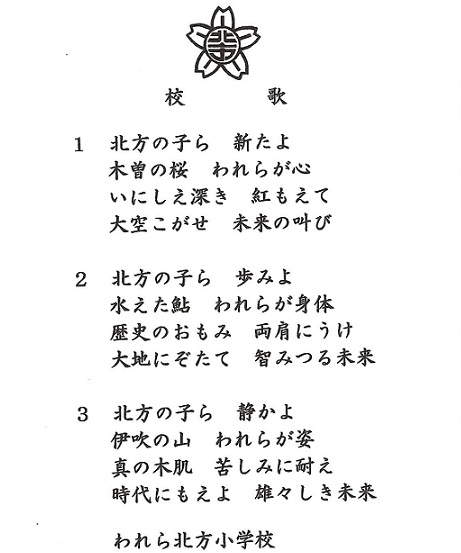 校 歌
1 北方の子ら 新たよ
木曽の桜 われらが心
いにしえ深き 紅もえて
大空こがせ 未来の叫び
2 北方の子ら 歩みよ
水えた鮎 われらが身体
歴史のおもみ 両肩にうけ
大地にぞたて 智みつる未来
3 北方の子ら 静かよ
伊吹の山 われらが姿
真の木肌 苦しみに耐え
時代にもえよ 雄々しき未来
われら北方小学校